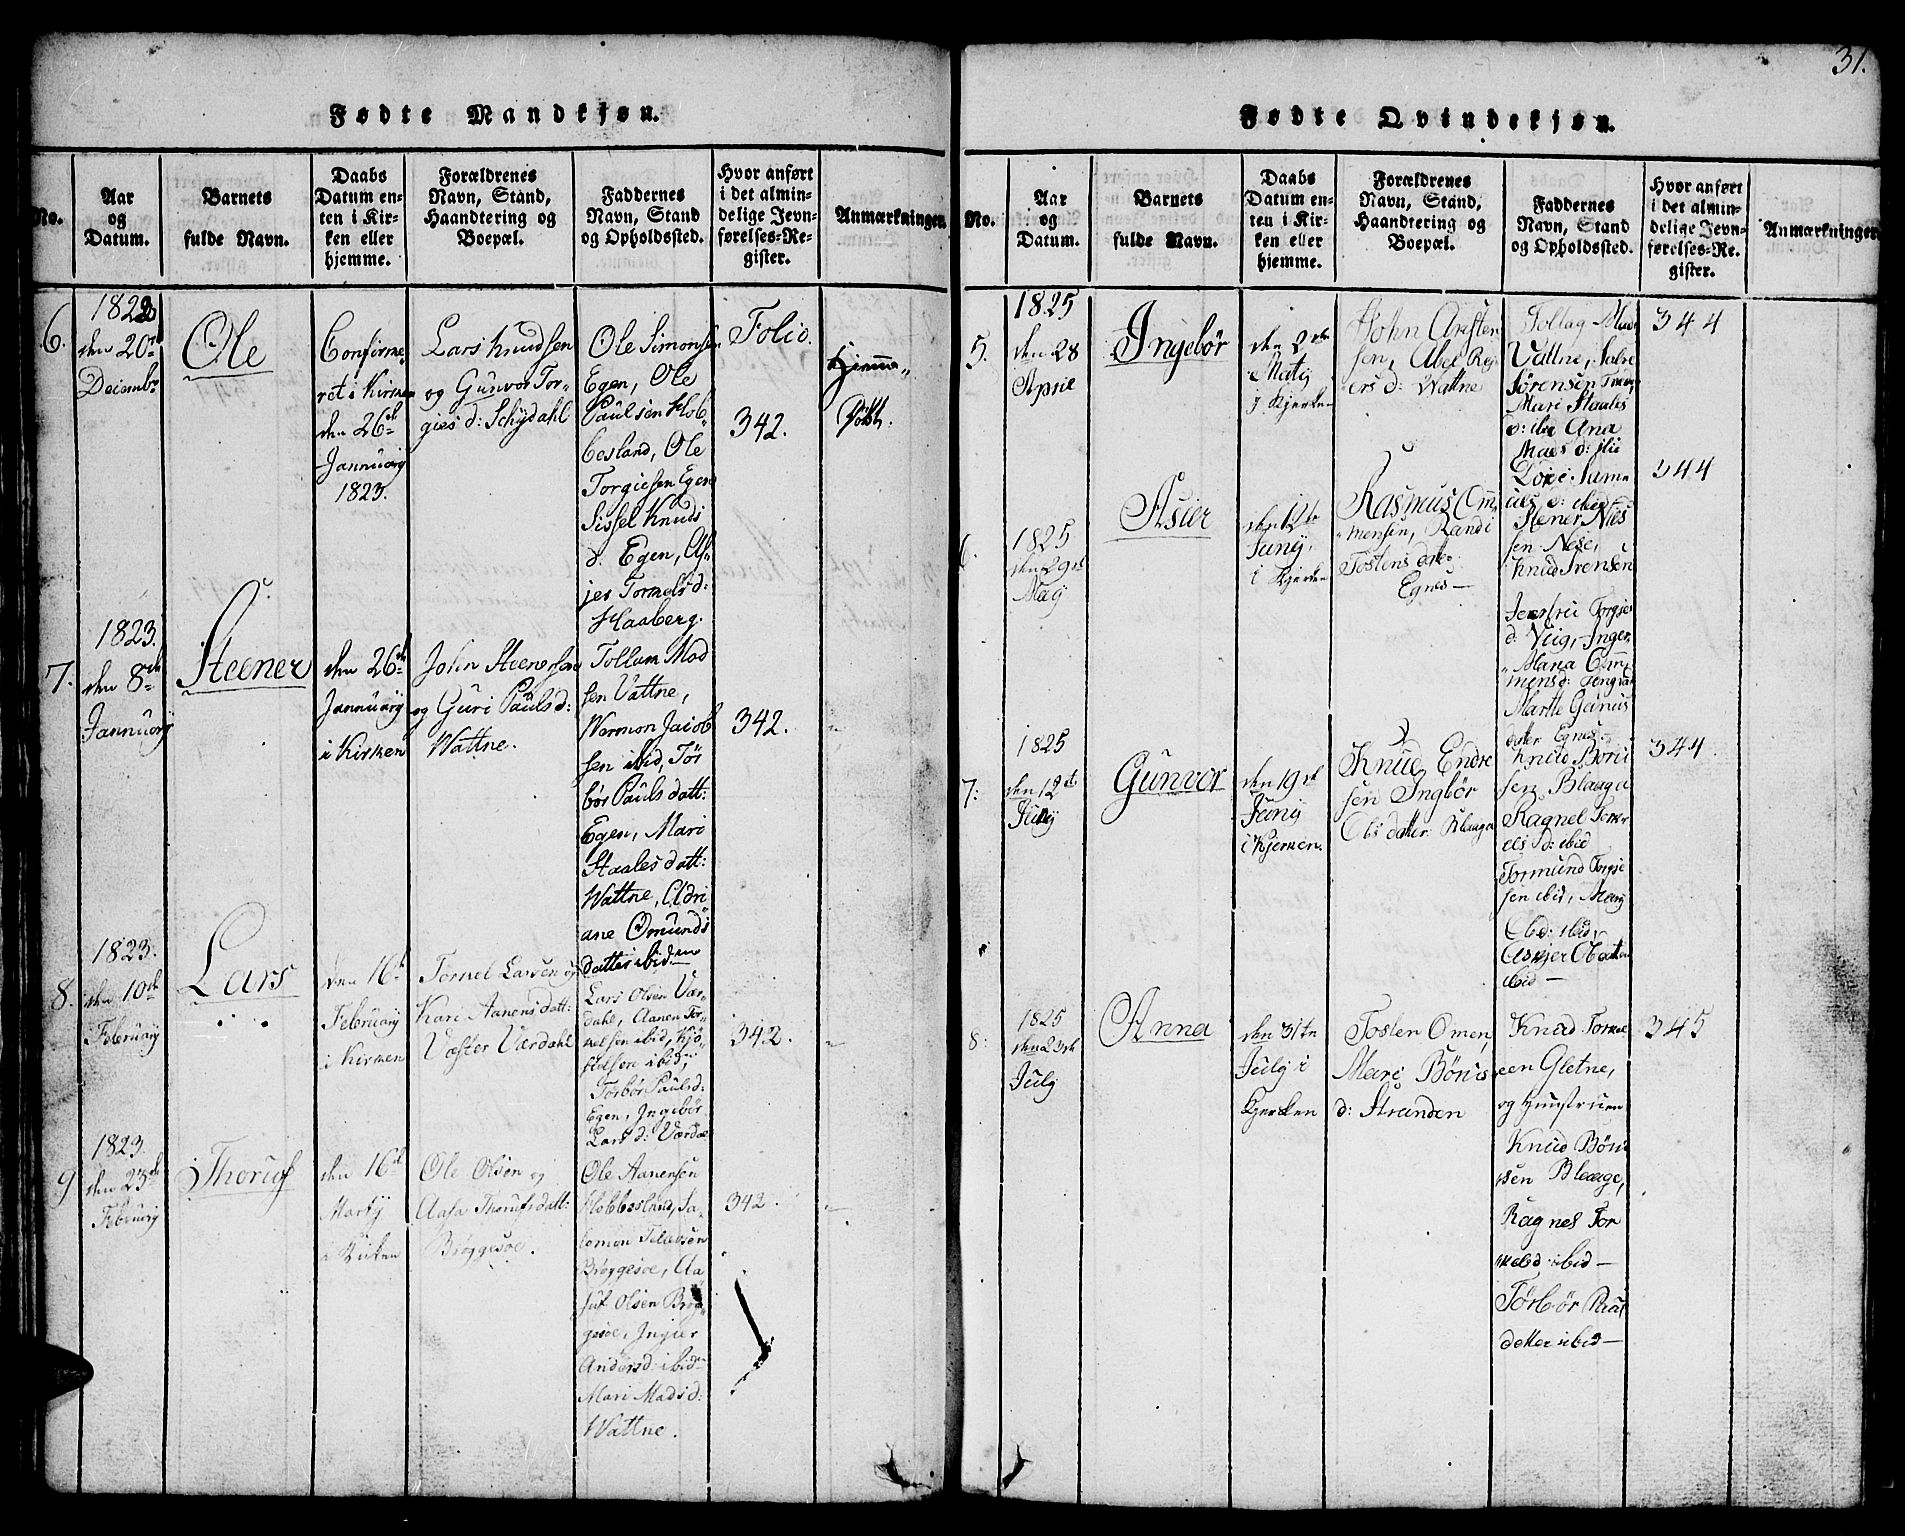 31.
Fødte Mandkjøn.
No.
Aar
og
Datum.
Barnets
fulde Navn.
Daabs
Datum en-
ten i Kir-
ken eller
hjemme.
Forældrenes
Navn, Stand,
Haandtering og
Boepæl.
Faddernes
Navn, Stand
og Opholdssted.
Hvor anført
i det almin-
delige Jevn-
førelses-Re-
gister.
Anmærkninger.
6.
1822
den 20de
Decembr.
Ole
Confirme-
ret i Kirken
den 26de
Jannuarij
1823.
Lars Knudsen
og Gunvor Tor-
gies d: Schijdahl
Ole Simonsen
Egen, Ole
Paulsen Hob-
besland, Ole
Torgiesen Egen
Sissel Knuds
d: Egen, As-
jer Tormels d:
Haaberg.
Folio.
342.
Hjemme-
Døbt.
7.
1823.
den 8de
Jannuarij
Steener
den 26de
Jannuarij
i Kirken
John Steenersen
og Guri Pauls d:
Wattne.
Tollam Mad
sen Vattne,
Wermon Jacob
sen ibid, Tør
bør Pauls datt:
Egen, Mari
Staales datt:
Wattne, Adri
ane Omunds
datter ibidm
342.
8.
1823.
den 10de
Februarij
Lars
den 16de
Februarij
i Kirken
Tormel Larsen og
Kari Aanens datt:
Væster Værdahl
Lars Olsen Vær-
dahl, Aanen Tor-
melsen ibid, Kjø-
stelsen ibidm,
Torbør Pauls d:
Egen, Ingebør
Lars d: Værdal
342.
9
1823.
den 23de
Februarij
Thoruf
den 16de
Martij
i Kirken
Ole Olsen og
Aasa Thorufs datt:
Brøggesøe.
Ole Aanensen
Hobbesland, Sa-
lomon Tellefsen
Brøggesøe, Aa
suf Olsen Brøg-
gesøe, Ingier
Anders d: ibidm
Mari Mads d:
Wattne.
342.
Fødte Qvindekjøn.
No.
Aar
og
Datum.
Barnets
fulde Navn.
Daabs
Datum en-
ten i Kir-
ken eller
hjemme.
Forældrenes
Navn, Stand,
Haandtering og
Boepæl.
Faddernes
Navn, Stand
og Opholdssted.
Hvor anført
i det almin-
delige Jevn-
førelses-Re-
gister.
Anmærkninger.
5.
1825
den 28
April
Ingebør
den 2den
Maij
i Kjerken
John Aresten
sen, Abel Rej
ers d: Wattne
Tollag Mad
Vattne, Salve
Sørensen
Mari Staales
d: ibid Ana
Mads d: ibid
Sam-
uels d: ibid
344
6.
1825
den 29de
Maij
Asier
den 12te
Junij
i Kjerken
Rasmus Om-
mensen, Randi
Tostens dtr
Egnes—
Stener Niels
sen Nese,
Knud Ivensen
Torgies
d: Veig, Inger
Maria Om-
mens d:
Marthe Geinus
dater Egnes.
344
7.
1825
den 12te
Junij
Gunvor
den 19de
Junij
i Kjerken.
Knud Endre
sen Ingbør
Ols datter Blaaga
Knud Børu
sen Blaaga
Ragnel Torm
els d: ibid
Tormund Torgie
sen ibid, Marij
Ols d: ibid,
Asgier Ols datter
ibid—
344.
8.
1825
den 23de
Julij
Anna
den 31te
Julij i
Kjerken
Tosten Omen,
Mari Børus
d: Stranden
Knud Tormel
sen Gletne,
og Hunstruen
Knud Børu
sen Blaage,
Ragnel Tor
mels d: ibid—
Tørbør Pauls
datter ibid—
345